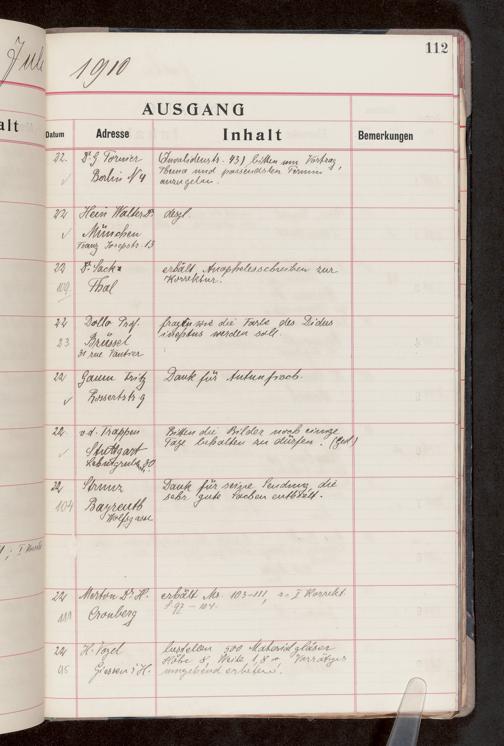 Juli
1910
112
alt
AUSGANG
Datum Adresse Inhalt Bemerkungen
22. Dr. G Tornier (Invalidenstr. 43) bitten um Vortrag,
Berlin N 4 Thema und passendsten Termin
anzugeben.
22 Hein Walter Dr. degl.
München
Franz Josephstr. 13
22 Dr. Sack erhält Anophelesschreiben zur
109 Thal Korrektur.
22 Dollo Prof. fragen wie die Farbe des Didus
23 Brüssel ineptus werden soll.
31 rue Vautier
22 Gaum Fritz Dank für
Rossertstr 9
22 v.d. Trappen Bitten die Bilder noch einige
Stuttgart Tage behalten zu dürfen.
30
22 Dank für seine Sendung, die
104 Bayreuth sehr gute Sachen enthält.
22 Merton Dr. H. erhält No. 103-111, I Korrekt
Cronberg 97-104.
22 H. Vogel bestellen 500 Materialgläser
Giessen i/H. Höhe 8, Weite
umgehend erbeten.